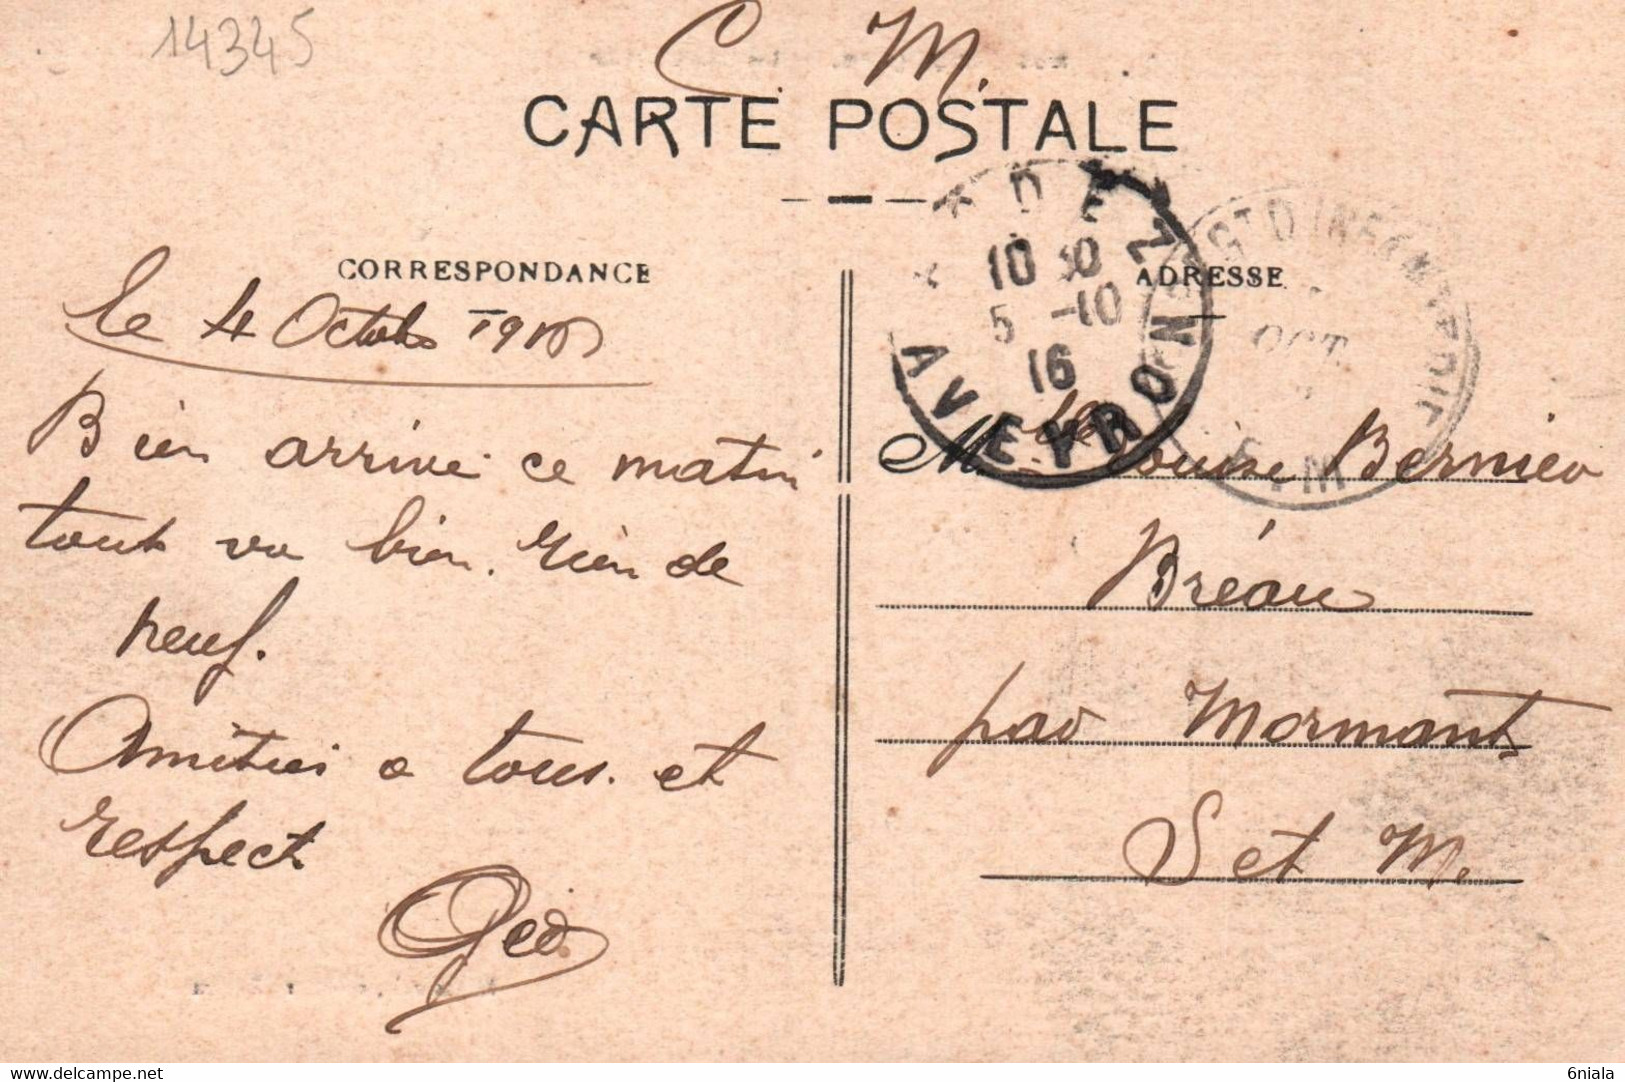 14345
C. M.
CARTE POSTALE
CORRESPONDANCE
le 4 Octobre 1916
Bien arrivé ce matin
tout va bien. rien de
neuf.
Amitiés a tous. et
respect
Geo
ADRESSE
RODEZ
10 30
5 -10
16
AVEYRON
OCT
Mlle Louise Bernier
Bréau
par Mormant
S et M.
www.delcampe.net
6niala